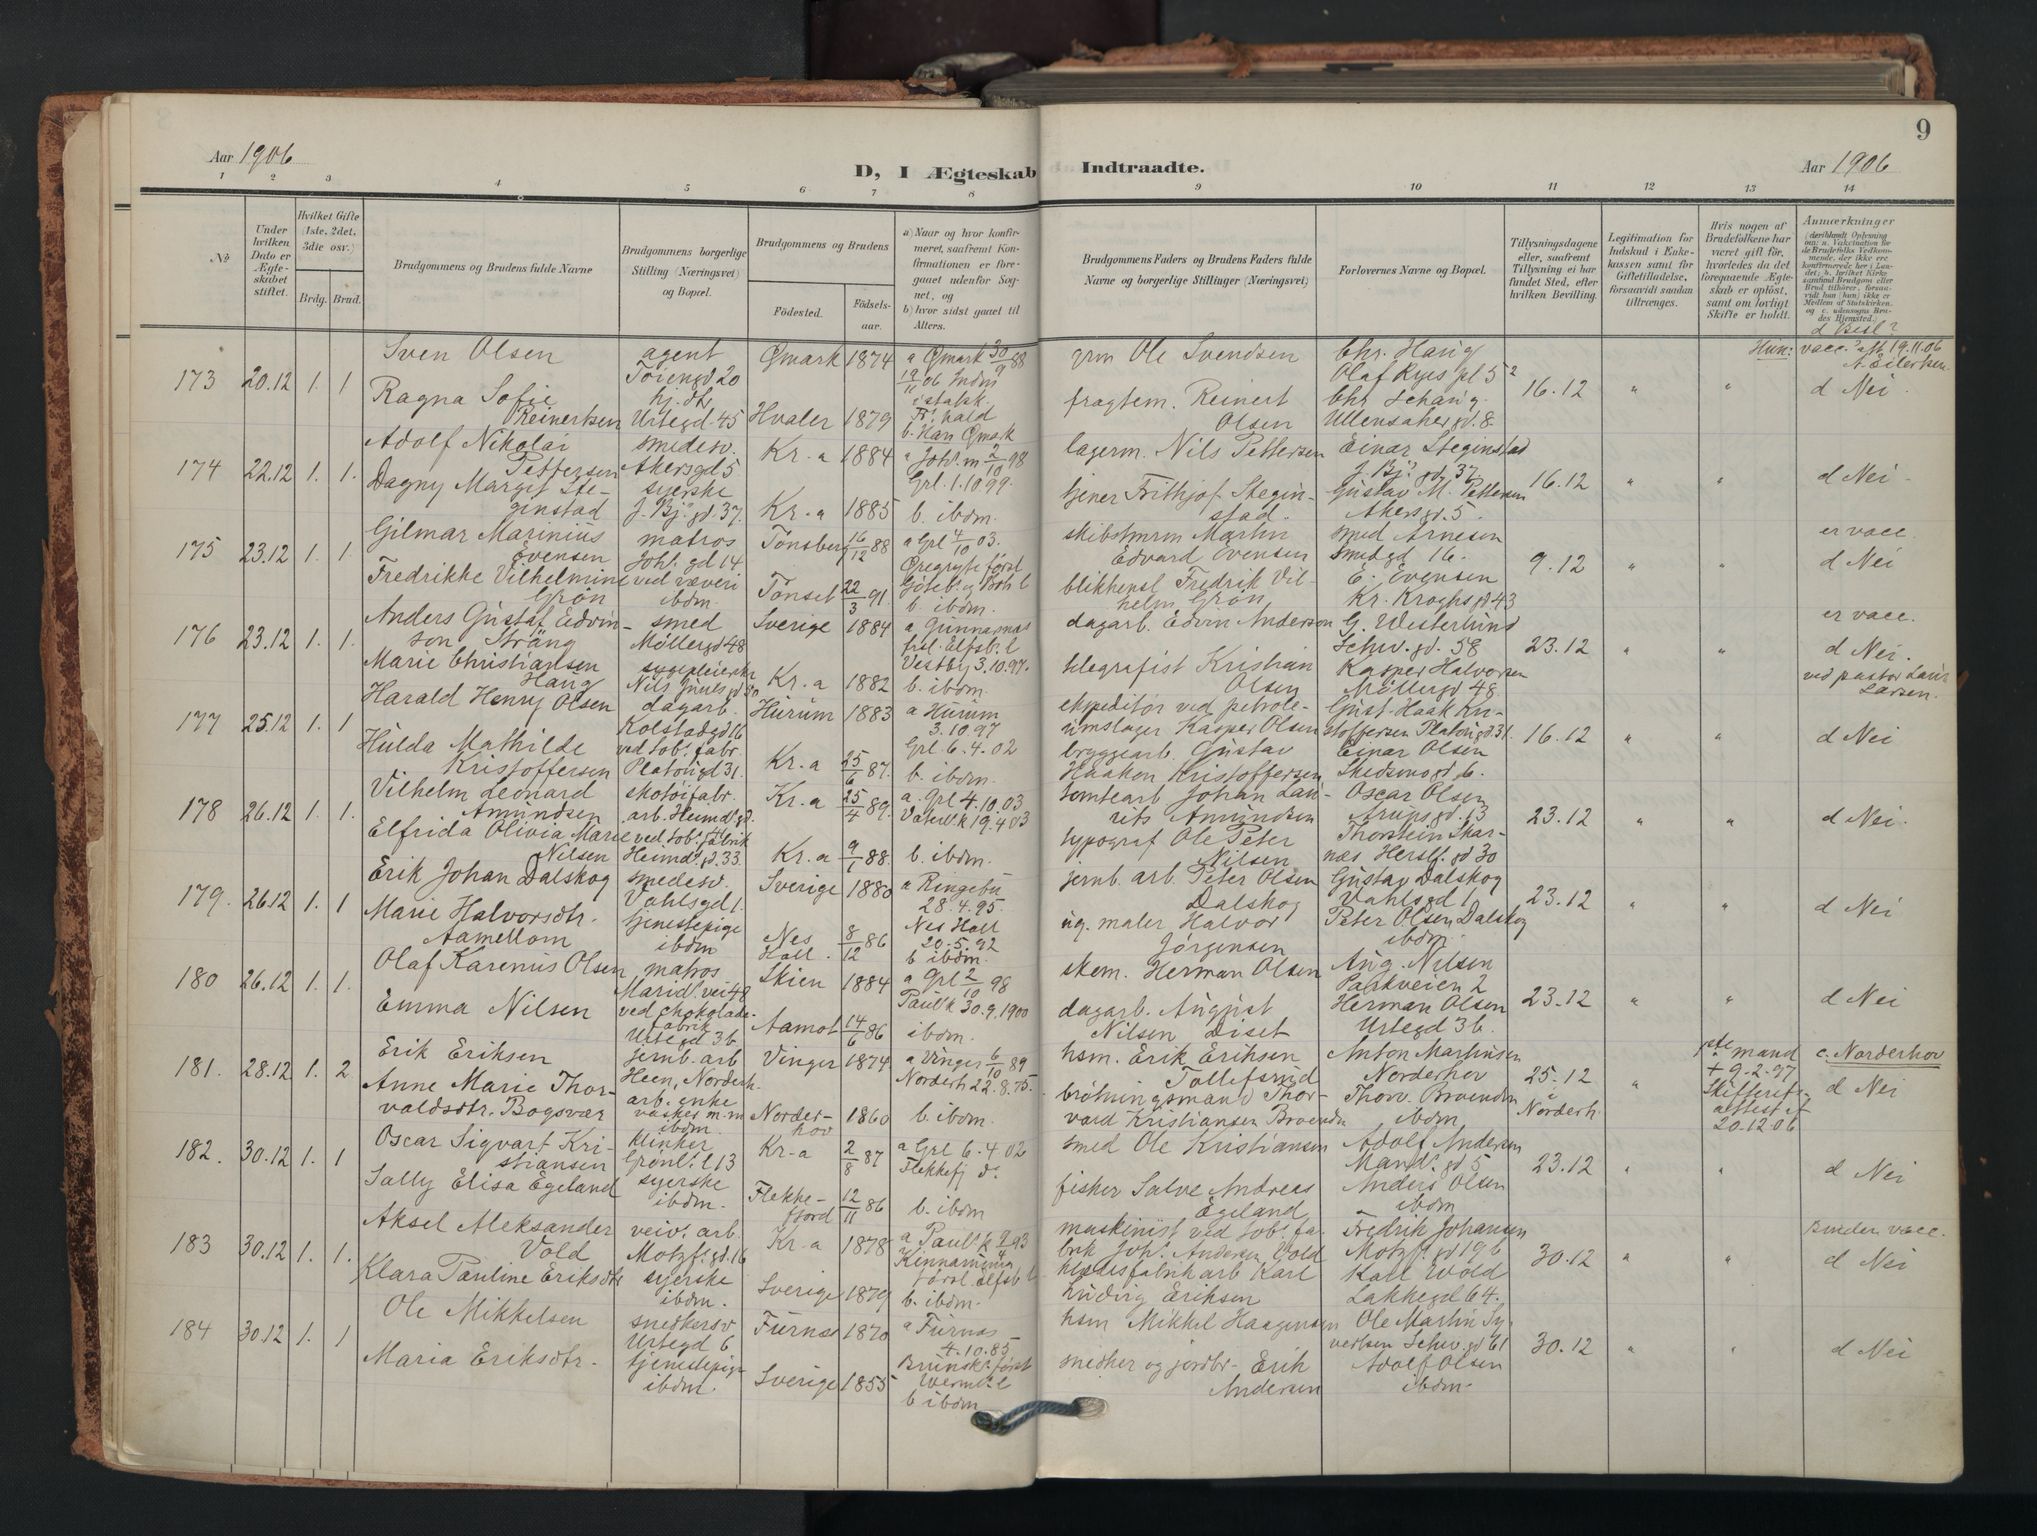 9
Aar 1906
D, I Ægteskab Indtraadte.
Aar 1906
1 2 3 4 5 6 7 8 9 10 11 12 13 14
No
Under hvilken Dato er Ægteskabet stiftet.
Hvilket Gifte (1ste, 2det, 3die osv.)
Brdg. Brud.
Brudgommens og Brudens fulde Navne
Brudgommens borgerlige Stilling (Næringsvei) og Bopæl.
Brudgommens og Brudens
Födested.
Födselsaar.
a) Naar og hvor konfirmeret, saafremt Konfirmationen er foregaaet udenfor Sognet, og
b) hvor sidst gaaet til Alters.
Brudgommens Faders og Brudens Faders fulde Navne og borgerlige Stillinger (Næringsvei)
Forlovernes Navne og Bopæl.
Tillysningsdagene eller, saafremt Tillysning ei har fundet Sted, efter hvilken Bevilling.
Legitimation for Indskud i Enkekassen samt for Giftetilladelse, forsaavidt saadan tiltrænges.
Hvis nogen af Brudefolkene har været gift för, hvorledes da det foregaaende Ægteskab er oplöst, samt om lovligt Skifte er holdt.
Anmærkninger
d Besl?
173 20.12 1. 1
Sven Olsen
agent Töiengd 20
Ömark 1874
a Ömark 30/9 88
grm Ole Svendsen
Chr. Haug Olaf Ryes pl 5
16.12 " "
Hun: vacc. att 19.11.06
d Nei
Ragna Sofie Reinertsen
hj. dtr Urtegd. 45
Hvaler 1879
b. Han Ömark
fragtem. Reinert Olsen
Chr. Schaug. Ullensakergd. 8.
174 22.12 1. 1.
Adolf Nikolai Pettersen
smedesv. Akersgd 5
Kr.a 1884
a Joh. m 2/10 98
Grl. 1.10.99.
lagerm. Nils Pettersen
Einar Steginstad J. Bj. gd. 37
16.12 " "
d Nei
Dagny Margit Steginstad
syerske J. Bj. gd 37.
Kr.a 1885
b. ibdm.
tjener Frithjof Steginstad.
Gustav M. Pettersen Akersgd. 5.
175 23.12 1. 1.
Gilmar Marinius Evensen
matros Joh. gd 14
Tönsberg 16/12 88
a Grl 4/10 03.
skibstmrm Martin Edvard Evensen
smed Arnesen Smedgd 16.
9.12 " "
er vacc.
d Nei
Fredrikke Vilhelmine Grön
ved væveri ibdm.
Tönset 22/3 91
b. ibdm.
blikkensl Fredrik Vilhelm Grön
E. Evensen Kr. Kroghs gd 43
176 23.12 1. 1.
Anders Gustaf Edvinson Sträng
smed Möllergd 48
Sverige 1884
a Gunnarsnäs
förl. Elfsb. l
dagarb. Edvin Anderson
G. Westerlund Schw. gd. 58
23.12 " "
er vacc.
d Nei.
Marie Christiansen Haug
sygepleierske Nils Juels gd 30
Kr.a 1882
Vestby 3.10.97.
b. ibdm.
telegrafist Kristian Olsen
Kasper Halvorsen Möllergd 48.
ved pastor Laur Larsen.
177 25.12 1. 1
Harald Henry Olsen
dagarb. Kolstadgd 16
Hurum 1883
a Hurum 3.10 97
ekspeditör ved petroleumslager Kasper Olsen
Gust. Haak Kristoffersen Platougd. 31.
16.12 " "
d Nei
Hulda Mathilde Kristoffersen
ved tob. fabr. Platougd 31.
Kr.a 25/6 87.
Grl 6.4.02
b. ibdm.
bryggearb. Gustav Haakon Kristoffersen
Einar Olsen Skedsmogd 6.
178 26.12 1. 1.
Vilhelm Leonard Amundsen
skotöifabr. arb. Heimd. gd.
Kr.a 25/4 89.
a. Grl 4.10.03
tomtearb Johan Laurits Amundsen
Oscar Olsen Arupsgd. 13
23.12 " "
d Nei.
Elfrida Olivia Marie Nilsen
ved tob. fabrik Heimd. gd. 33.
Kr.a 9/1 88.
Vater. k 19.4 03
b. ibdm.
typograf Ole Peter Nilsen
Thorstein Skarnæs Herslf. gd 30
179. 26.12 1. 1
Erik Johan Dalskog
smedesv. Vahlsgd 1.
Sverige 1880
a Ringebu 28.4.95.
jernb. arb. Peter Olsen Dalskog
Gustav Dalskog Vahlsgd 1
23.12 " "
d Nei
Marie Halvorsdtr. Aamellom
tjenestepige ibdm
Nes Hall. 8/12 86
Nes Hall 20.5.92
b ibdm.
ug. maler Halvor Jörgensen
Peter Olsen Dalskog ibdm.
180 26.12 1. 1.
Olaf Karenius Olsen
matros Marid. vei 48
Skien 1884
a Grl 2/10 98
skom. Herman Olsen
Aug. Nilsen Parkveien 2
23.12 " "
d Nei
Emma Nilsen
ved chokoladefabrik Urtegd 36
Aamot 14/6 86
Paul. k 30.9.1900
ibdm.
dagarb. August Nilsen Diset
Herman Olsen Urtegd 36.
181. 28.12 1. 2.
Erik Eriksen
jernb. arb Heen, Norderh.
Vinger 1874
a Vinger 6/10 89
hsm. Erik Eriksen Tollefsrud
Anton Martinsen Norderhov
25.12 Norderh. "
1ste mand + 9.2.97
Skifteretsattest af 20.12.06
c. Norderhov
d Nei
Anne Marie Thorvaldsdtr. Bogsvær
arb. enke vasker m.m ibdm.
Norderhov 1860
Norderh 22.8.75.
b. ibdm.
brötningsmand Thorvard Kristiansen Braenden
Thorv. Braenden ibdm
182. 30.12 1. 1
Oscar Sigvart Kristiansen
klinker Grönl. l 13
Kr-a 2/8 87
a Grl 6.4.02
smed Ole Kristiansen
Adolf Andersen Mand. gd 5
23.12 " "
d Nei
Sally Elisa Egeland
syerske ibdm.
Flekkefjord 12/11 86
Flekkefj do
b. ibdm
fisker Salve Andreas Egeland
Anders Olsen ibdm
183 30.12 1. 1.
Aksel Aleksander Vold
veiv. arb. Motzf. gd. 16
Kr-a 1878
a Paul. k 2/4 93
maskinist ved tob. fabrik Joh. Andersen Vold
Fredrik Johansen Motzf. gd 196
30.12 " "
Bruden vacc.
d Nei
Klara Pauline Eriksdtr
syerske ibdm.
Sverige 1879
förl. Elfsb l
b. ibdm.
Karl Ludvig Eriksen
Karl Wold Lakkegd 64.
184 30.12 1. 1
Ole Mikkelsen
snedkersv Urtegd 6
Furnes 1870
a Furnes 4.10.85
hsm Mikkel Haagensen
Ole Martin Syvertsen Schw. gd 61
30.12 " "
d Nei
Maria Eriksdtr.
tjenestepige ibdm.
Sverige 1855
Brunsk. först Werml. l
b ibdm
snedker og jordbr. Erik Andersen
Adolf Olsen ibdm.